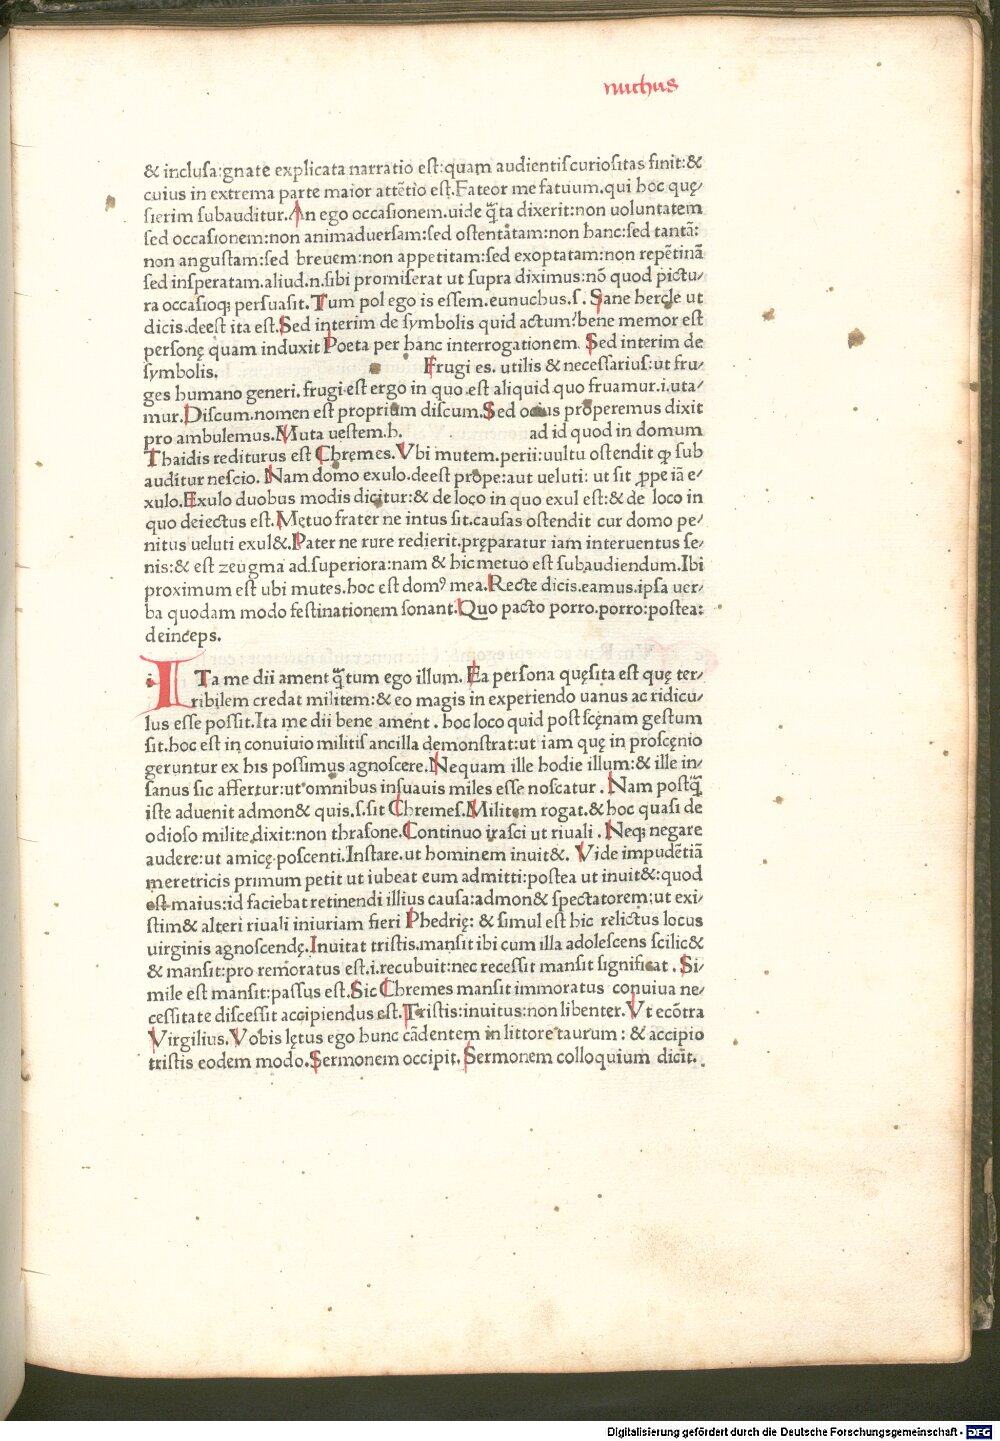 nuchus
& inclusa:gnate explicata narratio est:quam audientiſcurioſitas finit:&
cuius in extrema parte maior attẽtio eſt.Fateor me fatuum.qui hoc quę/
ſierim ſubauditur.An ego occaſionem.uide q̃ta dixerit:non uoluntatem
ſed occaſionem:non animaduerſam:ſed oſtentatam:non hanc:ſed tantã:
non anguſtam:ſed breuem:non appetitam:ſed exoptatam:non repẽtinã
ſed inſperatam.aliud.n.ſibi promiſerat ut ſupra diximus:nõ quod pictu/
ra occaſioq; perſuaſit.Tum pol ego is eſſem.eunuchus.ſ. Sane hercle ut
dicis.deeſt ita eſt.Sed interim de ſymbolis quid actum?bene memor eſt
perſonę quam induxit Poeta per hanc interrogationem. Sed interim de
ſymbolis. Frugi es. utilis & neceſſarius:ut fru/
ges humano generi. frugi eſt ergo in quo.eſt aliquid quo fruamur.i.uta/
mur.Diſcum.nomen eſt proprium diſcum.Sed ocius properemus dixit
pro ambulemus.Muta ueſtem.h. ad id quod in domum
Thaidis rediturus eſt Chremes.Vbi mutem.perii:uultu oſtendit ꝙ ſub
auditur neſcio. Nam domo exulo.deeſt prope:aut ueluti: ut ſit ꝓpe iã e/
xulo.Exulo duobus modis dicitur:& de loco in quo exul eſt:& de loco in
quo deiectus eſt.Metuo frater ne intus ſit.cauſas oſtendit cur domo pe/
nitus ueluti exul&.Pater ne rure redierit.pręparatur iam interuentus ſe/
nis:& eſt zeugma ad ſuperiora:nam & hic metuo eſt ſubaudiendum.Ibi
proximum eſt ubi mutes.hoc eſt domꝰ mea.Recte dicis.eamus.ipſa uer/
ba quodam modo feſtinationem ſonant.Quo pacto porro.porro:poſtea:
deinceps.
ITa me dii ament q̃tum ego illum. Ea perſona quęſita eſt quę ter/
ribilem credat militem:& eo magis in experiendo uanus ac ridicu/
lus eſſe poſſit.Ita me dii bene ament . hoc loco quid poſt ſcęnam geſtum
ſit.hoc eſt in conuiuio militiſ ancilla demonſtrat:ut iam quę in proſcęnio
geruntur ex his poſſimus agnoſcere.Nequam ille hodie illum:& ille in/
ſanus ſic affertur:ut omnibus inſuauis miles eſſe noſcatur . Nam poſtq̃
iſte aduenit admon& quis.ſ.ſit Chremeſ.Militem rogat.& hoc quaſi de
odioſo milite dixit:non thraſone.Continuo iraſci ut riuali . Neq; negare
audere:ut amicę poſcenti.Inſtare.ut hominem inuit&. Vide impudẽtiã
meretricis primum petit ut iubeat eum admitti:poſtea ut inuit&:quod
eſt maius:id faciebat retinendi illius cauſa:admon& ſpectatorem:ut exi/
ſtim& alteri riuali iniuriam fieri Phedrię: & ſimul eſt hic relictus locus
uirginis agnoſcendę.Inuitat triſtis.manſit ibi cum illa adoleſcens ſcilic&
& manſit:pro remoratus eſt.i.recubuit:nec receſſit manſit ſignificat . Si/
mile eſt manſit:paſſus eſt.Sic Chremes manſit immoratus conuiua ne/
ceſſitate diſceſſit accipiendus eſt.Triſtis:inuitus:non libenter.Vt ecõtra
Virgilius.Vobis lętus ego hunc cãdentem in littore taurum : & accipio
triſtis eodem modo.Sermonem occipit. Sermonem colloquium dicit.
Digitalisierung gefördert durch die Deutsche Forschungsgemeinschaft - DFG